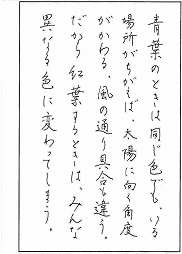 青葉のときは同じ色でも、いる
場所がちがえば、太陽に向く角度
がかわる。風の通り具合も違う。
だから紅葉するときは、みんな
異なる色に変わってしまう。